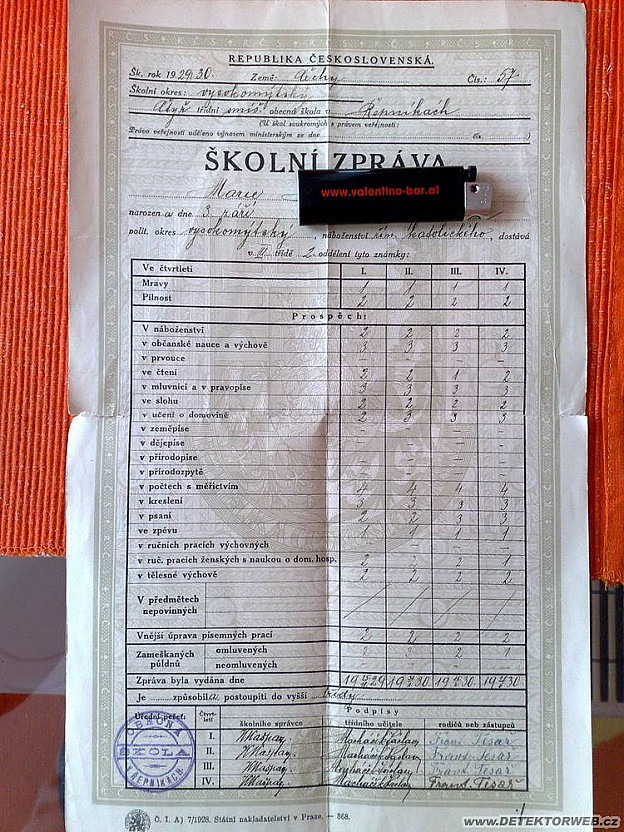 REPUBLIKA ČESKOSLOVENSKÁ.
Šk. rok 1929/30. Země: Čechy Čís.: 57
Školní okres: vysokomýtský
třídní smíš. obecná škola v Řepníkách
(U škol soukromých s právem veřejnosti:
Právo veřejnosti uděleno výnosem ministerským ze dne čís. )
ŠKOLNÍ ZPRÁVA
www.valentino-bar.at
Marie
narozena dne 3. září
polit. okres vysokomýtský, náboženství řím. katolického, dostává
v II. třídě 2. oddělení tyto známky:
Ve čtvrtletí I. II. III. IV.
Mravy 1 1 1 1
Pilnost 2 2 2 2
Prospěch:
V náboženství 2 2 2 2
v občanské nauce a výchově 3 3 3 3
v prvouce — — — —
ve čtení 2 2 1 2
v mluvnici a v pravopise 3 3 3 3
ve slohu 2 2 2 2
v učení o domovině 2 3 3 3
v zeměpise — — — —
v dějepise — — — —
v přírodopise — — — —
v přírodozpytě — — — —
v počtech s měřictvím 4 4 4 4
v kreslení 3 3 3 3
v psaní 2 2 3 3
ve zpěvu 1 1 1 1
v ručních pracích výchovných — —
v ruč. pracích ženských s naukou o dom. hosp. 2 2 2 1
v tělesné výchově 2 2 2 2
V předmětech nepovinných
Vnější úprava písemných prací 2 2 2 2
Zameškaných půldnů
omluvených 2 3 2 1
neomluvených
Zpráva byla vydána dne
Je způsobilá postoupiti do vyšší třídy
Podpisy
Úřední pečeť: Čtvrtletí školního správce třídního učitele rodičů neb zástupců
I. Frant. Tesař
II. Frant. Tesař
III. Frant. Tesař
IV. Frant. Tesař
OBECNÁ
ŠKOLA
V ŘEPNÍKÁCH
Č. I. A) 7/1928. Státní nakladatelství v Praze. — 368.
WWW.DETEKTORWEB.CZ